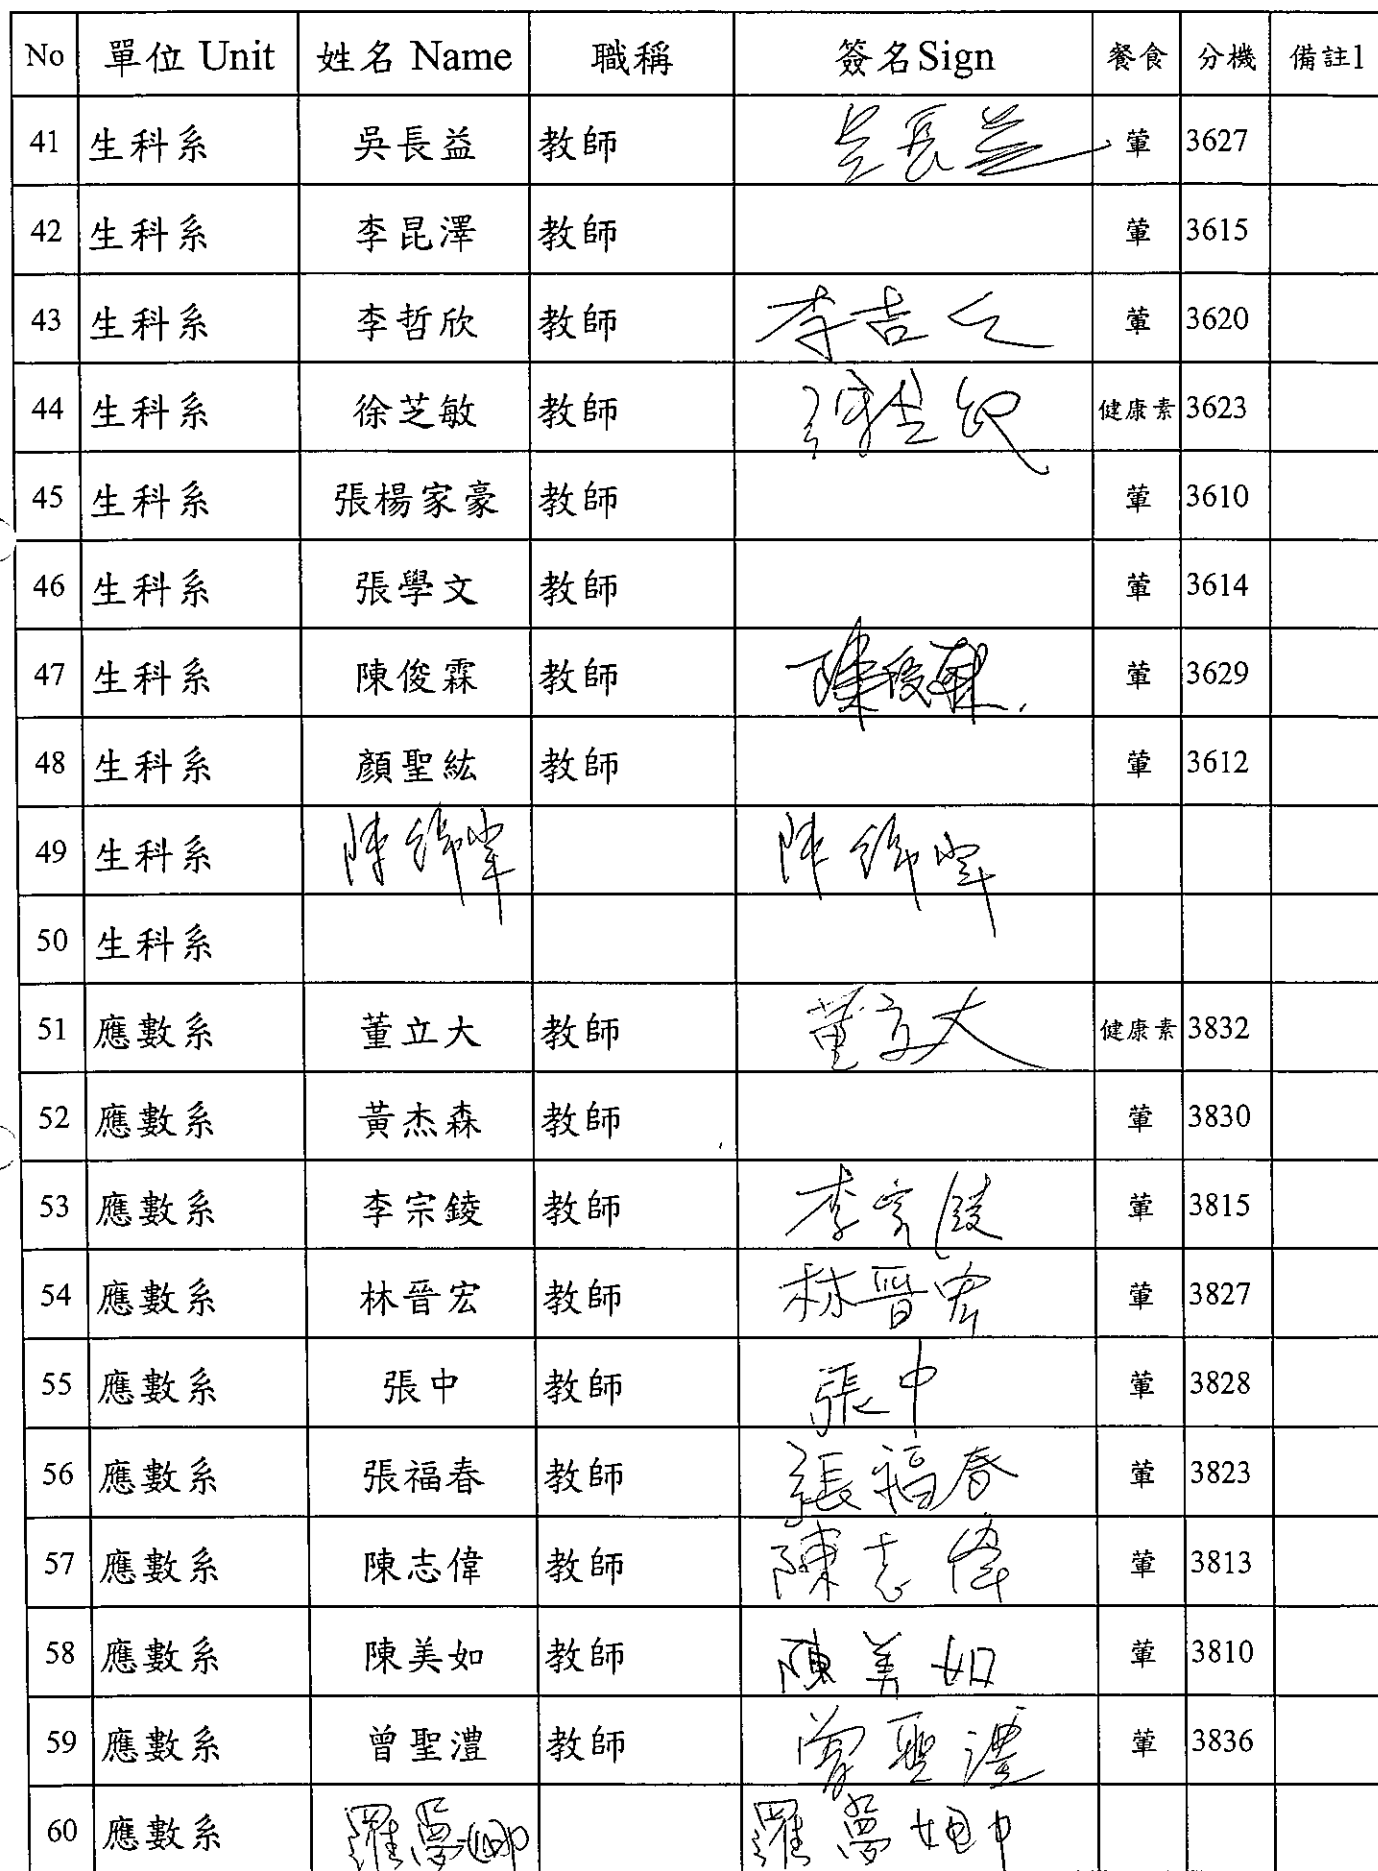 No 單位 Unit 姓名 Name 職稱 簽名Sign 餐食 分機 備註1
41 生科系 吳長益 教師 吳長益 葷 3627
42 生科系 李昆澤 教師 葷 3615
43 生科系 李哲欣 教師 李哲欣 葷 3620
44 生科系 徐芝敏 教師 徐芝敏 健康素 3623
45 生科系 張楊家豪 教師 葷 3610
46 生科系 張學文 教師 葷 3614
47 生科系 陳俊霖 教師 陳俊霖 葷 3629
48 生科系 顏聖紘 教師 葷 3612
49 生科系 陳 陳
50 生科系
51 應數系 董立大 教師 董立大 健康素 3832
52 應數系 黃杰森 教師 葷 3830
53 應數系 李宗錂 教師 李宗錂 葷 3815
54 應數系 林晉宏 教師 林晉宏 葷 3827
55 應數系 張中 教師 張中 葷 3828
56 應數系 張福春 教師 張福春 葷 3823
57 應數系 陳志偉 教師 陳志偉 葷 3813
58 應數系 陳美如 教師 陳美如 葷 3810
59 應數系 曾聖澧 教師 曾聖澧 葷 3836
60 應數系 羅夢娜 羅夢娜